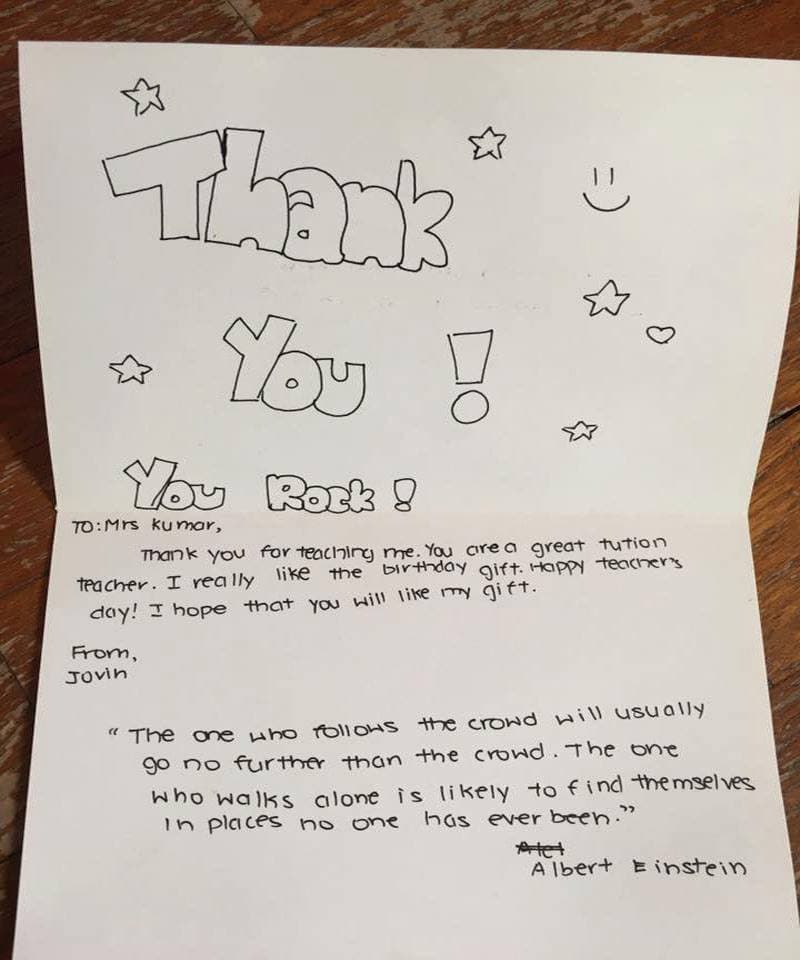 Thank
You !
You Rock !
TO: Mrs Kumar,
Thank you for teaching me. You are a great tution
teacher. I really like the birthday gift. Happy teacher's
day! I hope that you will like my gift.
From,
Jovin
"The one who follows the crowd will usually
go no further than the crowd. The one
who walks alone is likely to find themselves
in places no one has ever been."
Albert Einstein